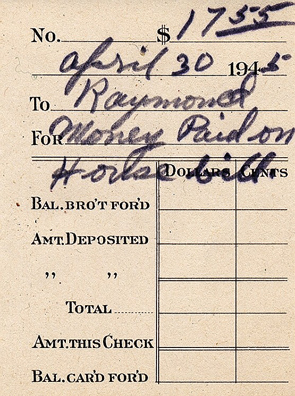 No. $ 17 55
April 30 1945
To Raymond
For Money Paid on
House bill.
DOLLARS CENTS
BAL. BRO'T FOR'D
AMT. DEPOSITED
" "
TOTAL
AMT. THIS CHECK
BAL. CAR'D FOR'D